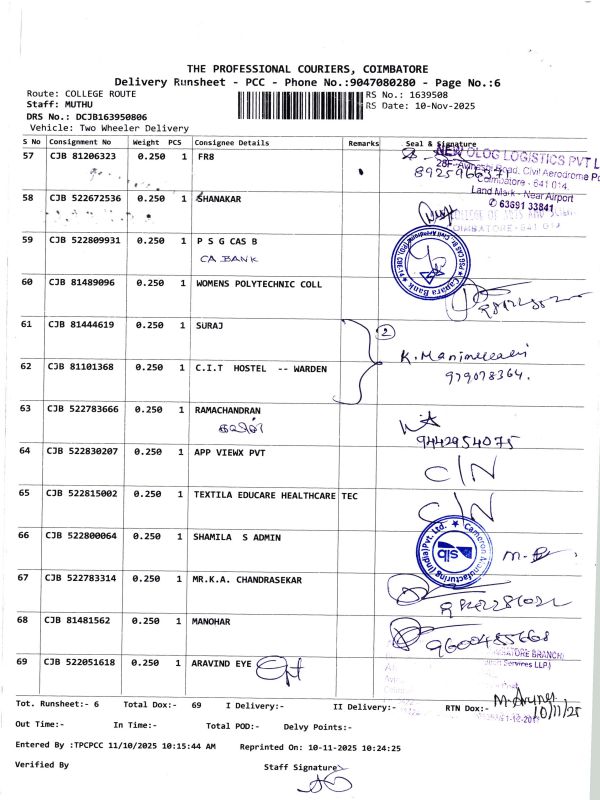 THE PROFESSIONAL COURIERS, COIMBATORE
Delivery Runsheet - PCC - Phone No.:9047080280 - Page No.:6
Route: COLLEGE ROUTE
RS No.: 1639508
Staff: MUTHU
RS Date: 10-Nov-2025
DRS No.: DCJB163950806
Vehicle: Two Wheeler Delivery
S No Consignment No Weight PCS Consignee Details Remarks Seal & Signature
57 CJB 81206323 0.250 1 FR8
OLOG LOGISTICS PVT L
28F, Avinashi Road, Civil Aerodrome Po
8925966371
Coimbatore - 641 014.
Land Mark - Near Airport
✆ 63691 33841
58 CJB 522672536 0.250 1 SHANAKAR
COLLEGE OF ARTS AND SCIEN
COIMBATORE - 641 014
59 CJB 522809931 0.250 1 P S G CAS B
CA BANK
Canara Bank
60 CJB 81489096 0.250 1 WOMENS POLYTECHNIC COLL
61 CJB 81444619 0.250 1 SURAJ
2
K. Manimekalai
979078364.
62 CJB 81101368 0.250 1 C.I.T HOSTEL -- WARDEN
63 CJB 522783666 0.250 1 RAMACHANDRAN
9442954075
64 CJB 522830207 0.250 1 APP VIEWX PVT
C/N
65 CJB 522815002 0.250 1 TEXTILA EDUCARE HEALTHCARE TEC
C/N
66 CJB 522800064 0.250 1 SHAMILA S ADMIN
Cameron Manufacturing (India) Pvt. Ltd.
slb
67 CJB 522783314 0.250 1 MR.K.A. CHANDRASEKAR
68 CJB 81481562 0.250 1 MANOHAR
9600485668
(COIMBATORE BRANCH)
Services LLP)
69 CJB 522051618 0.250 1 ARAVIND EYE
Tot. Runsheet:- 6 Total Dox:- 69 I Delivery:- II Delivery:- RTN Dox:-
10/11/25
Out Time:- In Time:- Total POD:- Delvy Points:-
Entered By :TPCPCC 11/10/2025 10:15:44 AM Reprinted On: 10-11-2025 10:24:25
Verified By Staff Signature